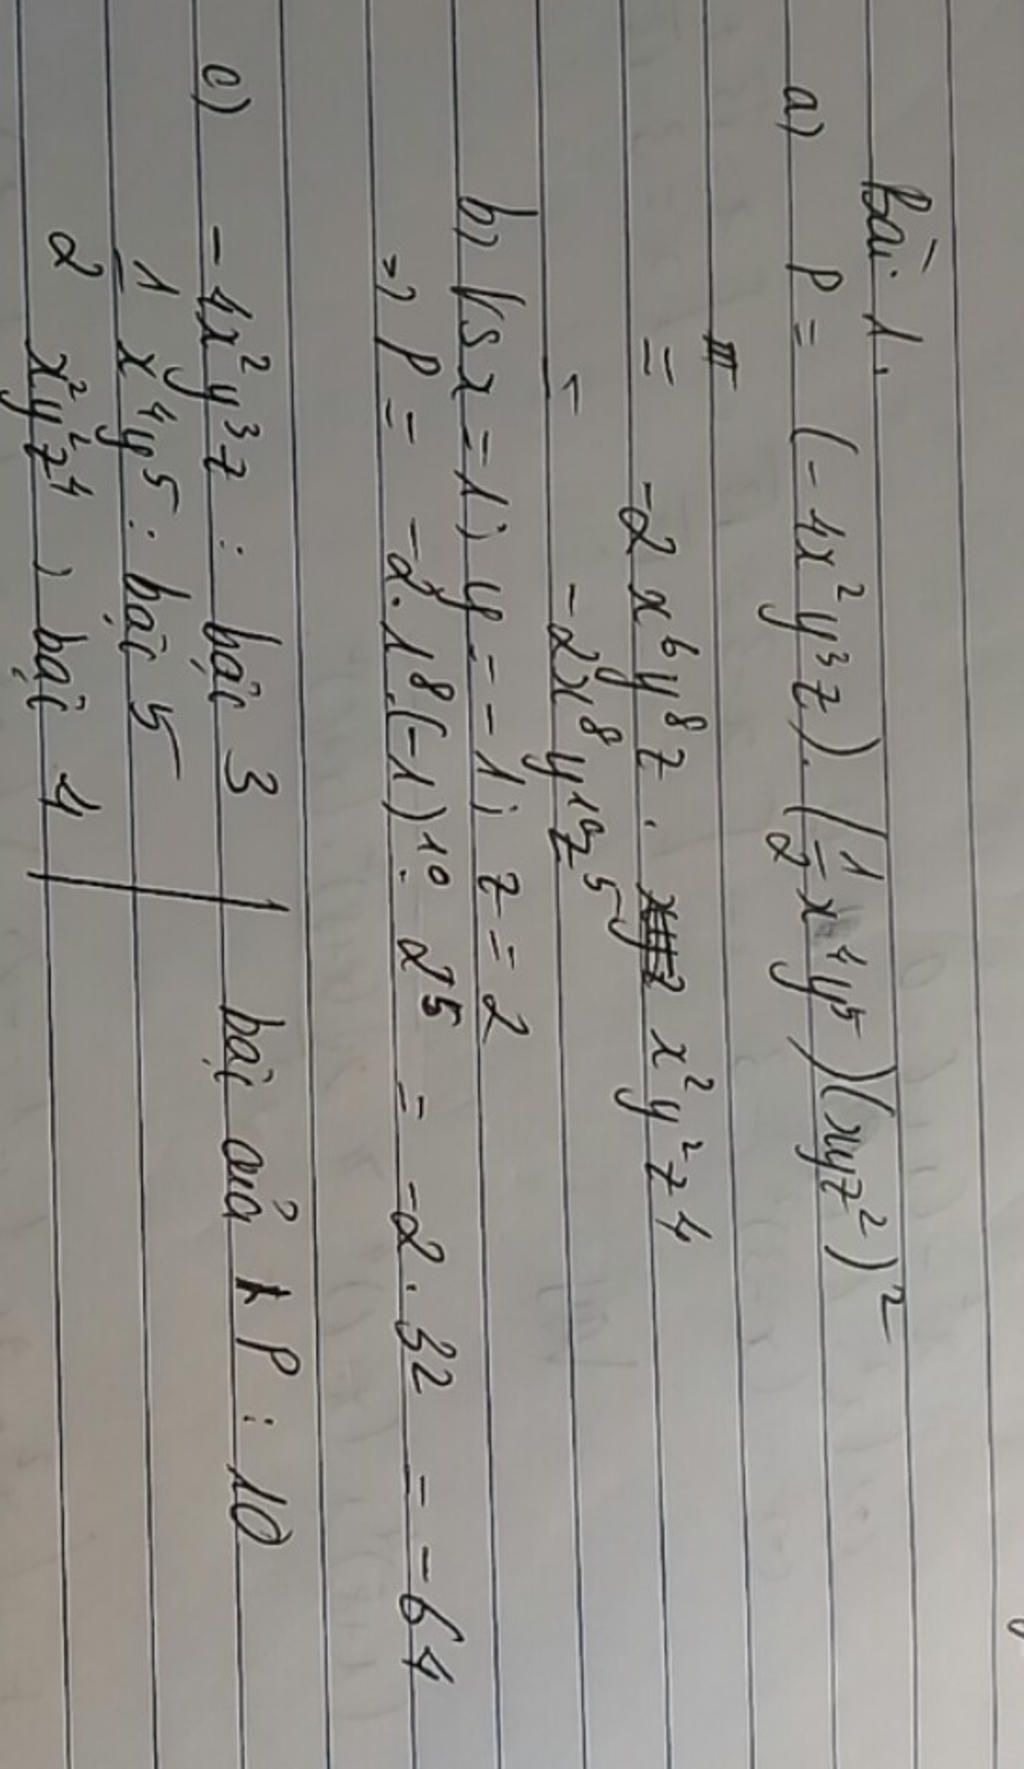 Bài 1.
a) P = (-4x²y³z).(1/2 x⁴y⁵)(xyz²)²
= -2x⁶y⁸z . x²y²z⁴
= -2x⁸y¹⁰z⁵
b) Vs x = 1; y = -1; z = 2
=> P = -2.1⁸.(-1)¹⁰. 2⁵ = -2.32 = -64
c) -4x²y³z : bậc 3
1/2 x⁴y⁵ : bậc 5
x²y²z⁴ ) bậc 4
bậc của P : 10